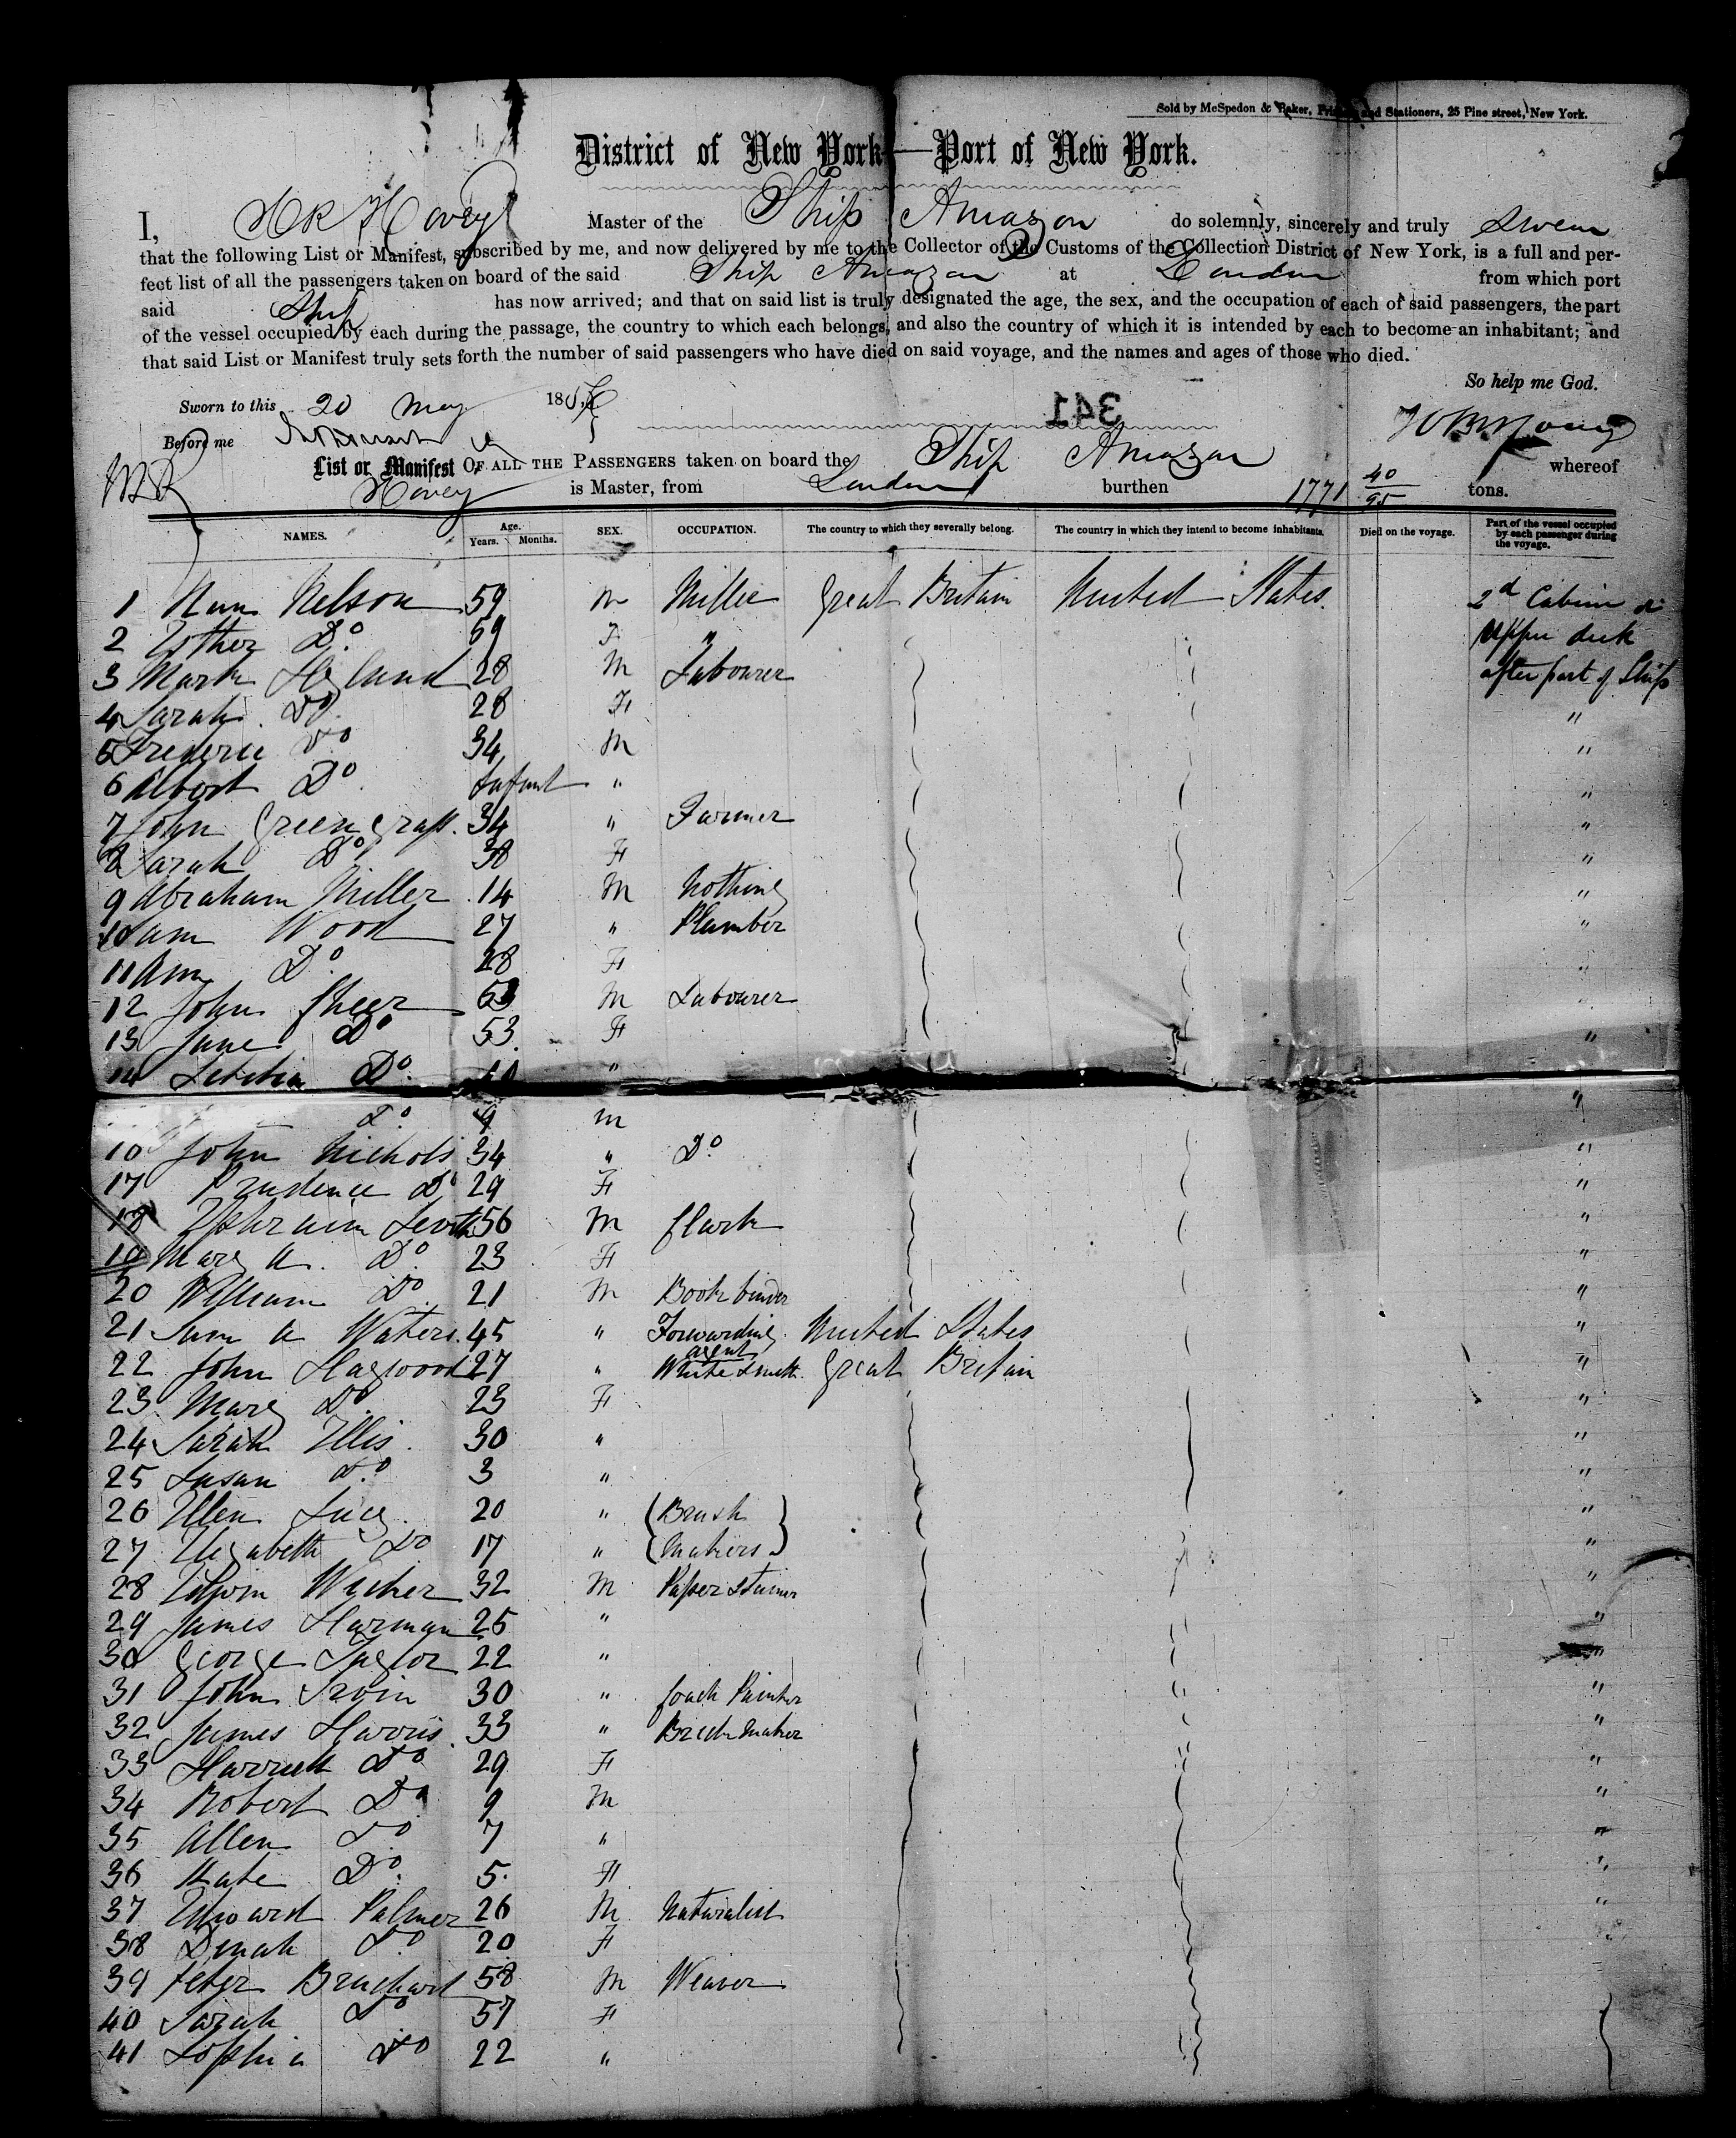 Sold by McSpedon & Baker, Printers and Stationers, 25 Pine street, New York.
District of New York—Port of New York.
I, H R Hovey Master of the Ship Amazon do solemnly, sincerely and truly Swear
that the following List or Manifest, subscribed by me, and now delivered by me to the Collector of the Customs of the Collection District of New York, is a full and per-
fect list of all the passengers taken on board of the said Ship Amazon at London from which port
said Ship has now arrived; and that on said list is truly designated the age, the sex, and the occupation of each of said passengers, the part
of the vessel occupied by each during the passage, the country to which each belongs, and also the country of which it is intended by each to become an inhabitant; and
that said List or Manifest truly sets forth the number of said passengers who have died on said voyage, and the names and ages of those who died.
So help me God.
Sworn to this 20 May 18
341
Before me
List or Manifest OF ALL THE PASSENGERS taken on board the Ship Amazon whereof
Hovey is Master, from London burthen 1771 40/95 tons.
NAMES. Age. Years. Months. SEX. OCCUPATION. The country to which they severally belong. The country in which they intend to become inhabitants. Died on the voyage. Part of the vessel occupied by each passenger during the voyage.
1 Nelson 59 M Great Britain United States. 2d Cabin &
2 Esther Do 59 F " Upper deck
3 Mark 28 M Labourer after part of Ship
4 Sarah Do 28 F "
5 Frederic Do 34 M "
6 Albert Do Infant " "
7 John Greengrass. 34 " Farmer "
8 Sarah Do 38 F "
9 Abraham Miller 14 M Nothing "
10 Sam Wood 27 " Plumber "
11 Ann Do 28 F "
12 John M Labourer "
13 Jane Do 53 F "
14 Letitia Do 11 "
Do 9 M "
16 John Nichols 34 " Do "
17 Prudence Do 29 F "
18 Ephraim 56 M Clark "
19 Mary A. Do 23 F "
20 William Do 21 M Book binder "
21 Sam A Waters. 45 " Forwarding agent United States "
22 John Hagwood 27 " White Smith Great Britain "
23 Mary Do 23 F "
24 Sarah Ellis. 30 " "
25 Susan Do 3 " "
26 Ellen 20 " { Brush } "
27 Elizabeth Do 17 " { Makers } "
28 Edwin 32 M Paper Stainer "
29 James Harman 25 " "
30 George Taylor 22 " "
31 John Irvin 30 " Coach Painter "
32 James Harris. 33 " Brick Maker "
33 Harriett Do 29 F "
34 Robert Do 9 M "
35 Allen Do 7 " "
36 Kate Do 5. F "
37 Edward Palmer 26 M Naturalist "
38 Dinah Do 20 F
39 Peter 58 M Weaver
40 Sarah Do 57 F
41 Sophia Do 22 "